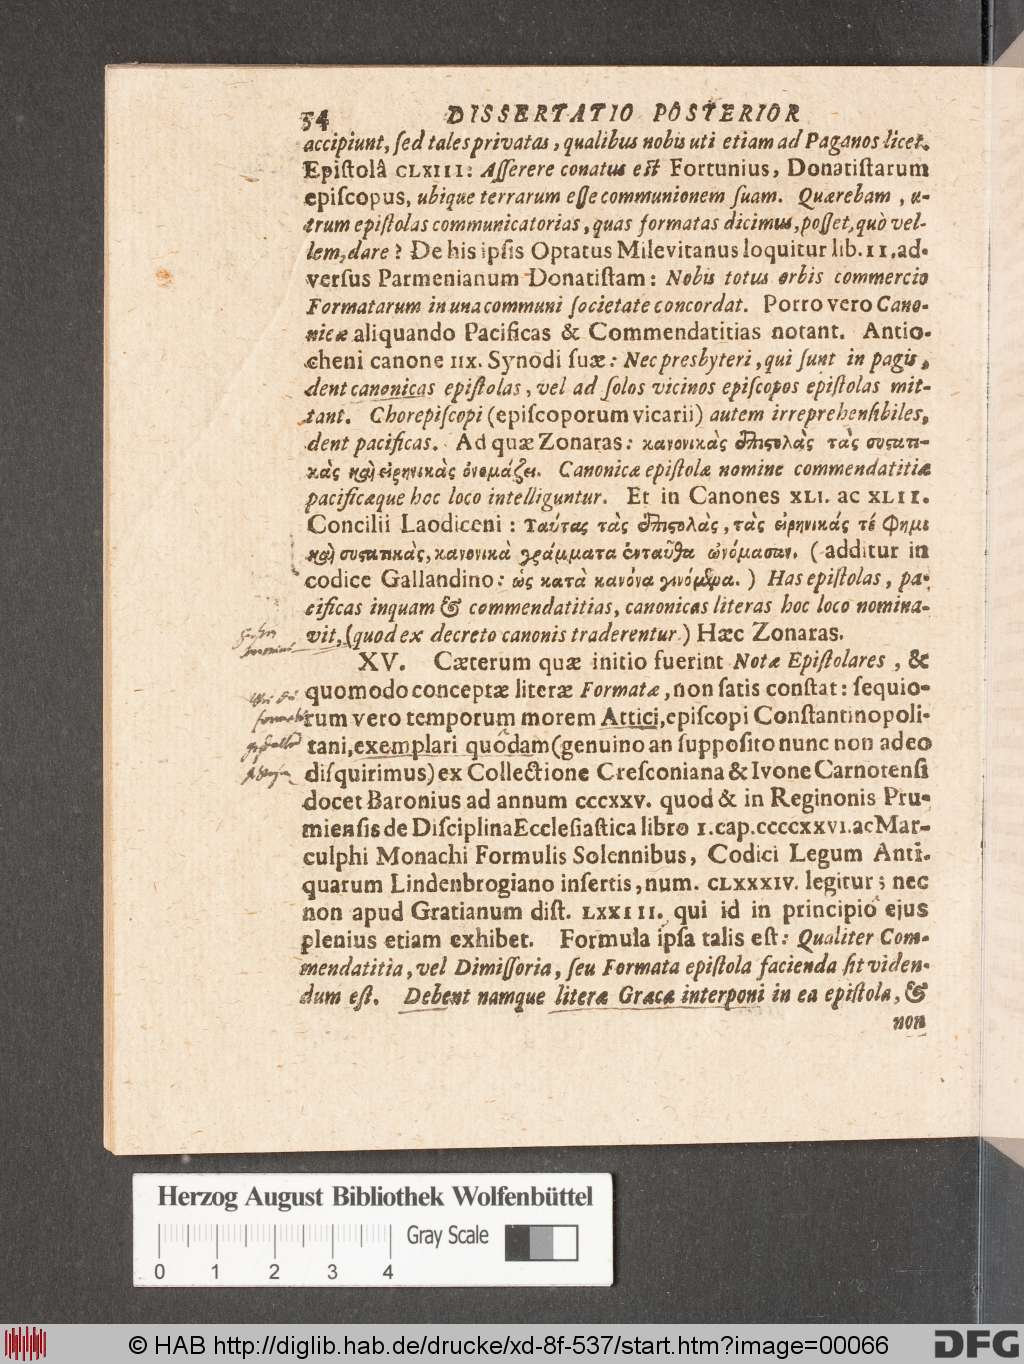 54 DISSERTATIO POSTERIOR
accipiunt, ſed tales privatas, qualibus nobis uti etiam ad Paganos licet.
Epiſtolâ CLXIII: Aſſerere conatus eſt Fortunius, Donatiſtarum
epiſcopus, ubique terrarum eſſe communionem ſuam. Quærebam, u-
trum epiſtolas communicatorias, quas formatas dicimus, poſſet, quò vel-
lem, dare? De his ipſis Optatus Milevitanus loquitur lib. II. ad-
verſus Parmenianum Donatiſtam: Nobis totus orbis commercio
Formatarum in una communi ſocietate concordat. Porro vero Cano-
nicæ aliquando Pacificas & Commendatitias notant. Antio-
cheni canone IIX. Synodi ſuæ: Nec presbyteri, qui ſunt in pagis,
dent canonicas epiſtolas, vel ad ſolos vicinos epiſcopos epiſtolas mit-
tant. Chorepiſcopi (epiſcoporum vicarii) autem irreprehenſibiles,
dent pacificas. Ad quæ Zonaras: κανονικὰς ἐπιστολὰς τὰς συστατι-
κὰς καὶ εἰρηνικὰς ὀνομάζει. Canonicæ epiſtolæ nomine commendatitiæ
pacificæque hoc loco intelliguntur. Et in Canones XLI. ac XLII.
Concilii Laodiceni: Ταύτας τὰς ἐπιστολὰς, τὰς εἰρηνικάς τέ φημι
καὶ συστατικὰς, κανονικὰ γράμματα ἐνταῦθα ὠνόμασαν. (additur in
codice Gallandino: ὡς κατὰ κανόνα γινόμενα.) Has epiſtolas, pa-
cificas inquam & commendatitias, canonicas literas hoc loco nomina-
vit, (quod ex decreto canonis traderentur) Hæc Zonaras.
XV. Cæterum quæ initio fuerint Notæ Epiſtolares, &
quomodo conceptæ literæ Formatæ, non ſatis conſtat: ſequio-
rum vero temporum morem Attici, epiſcopi Conſtantinopoli-
tani, exemplari quôdam (genuino an ſuppoſito nunc non adeo
diſquirimus) ex Collectione Creſconiana & Ivone Carnotenſi
docet Baronius ad annum CCCXXV. quod & in Reginonis Pru-
mienſis de Diſciplina Eccleſiaſtica libro I. cap. CCCCXXVI. ac Mar-
culphi Monachi Formulis Solennibus, Codici Legum Anti-
quarum Lindenbrogiano inſertis, num. CLXXXIV. legitur; nec
non apud Gratianum diſt. LXXIII. qui id in principio ejus
plenius etiam exhibet. Formula ipſa talis eſt: Qualiter Com-
mendatitia, vel Dimiſſoria, ſeu Formata epiſtola facienda ſit viden-
dum eſt. Debent namque literæ Græcæ interponi in ea epiſtola, &
non
Herzog August Bibliothek Wolfenbüttel
Gray Scale
0 1 2 3 4
© HAB http://diglib.hab.de/drucke/xd-8f-537/start.htm?image=00066
DFG